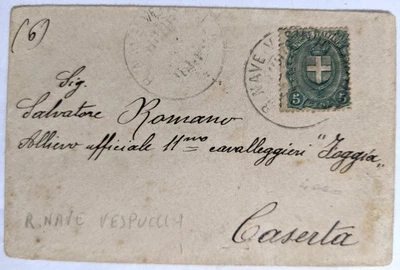 (6)
R. NAVE V
5 5
Sig.
Salvatore Romano
Allievo ufficiale 11mo cavalleggieri "Foggia"
Caserta
R. NAVE VESPUCCI